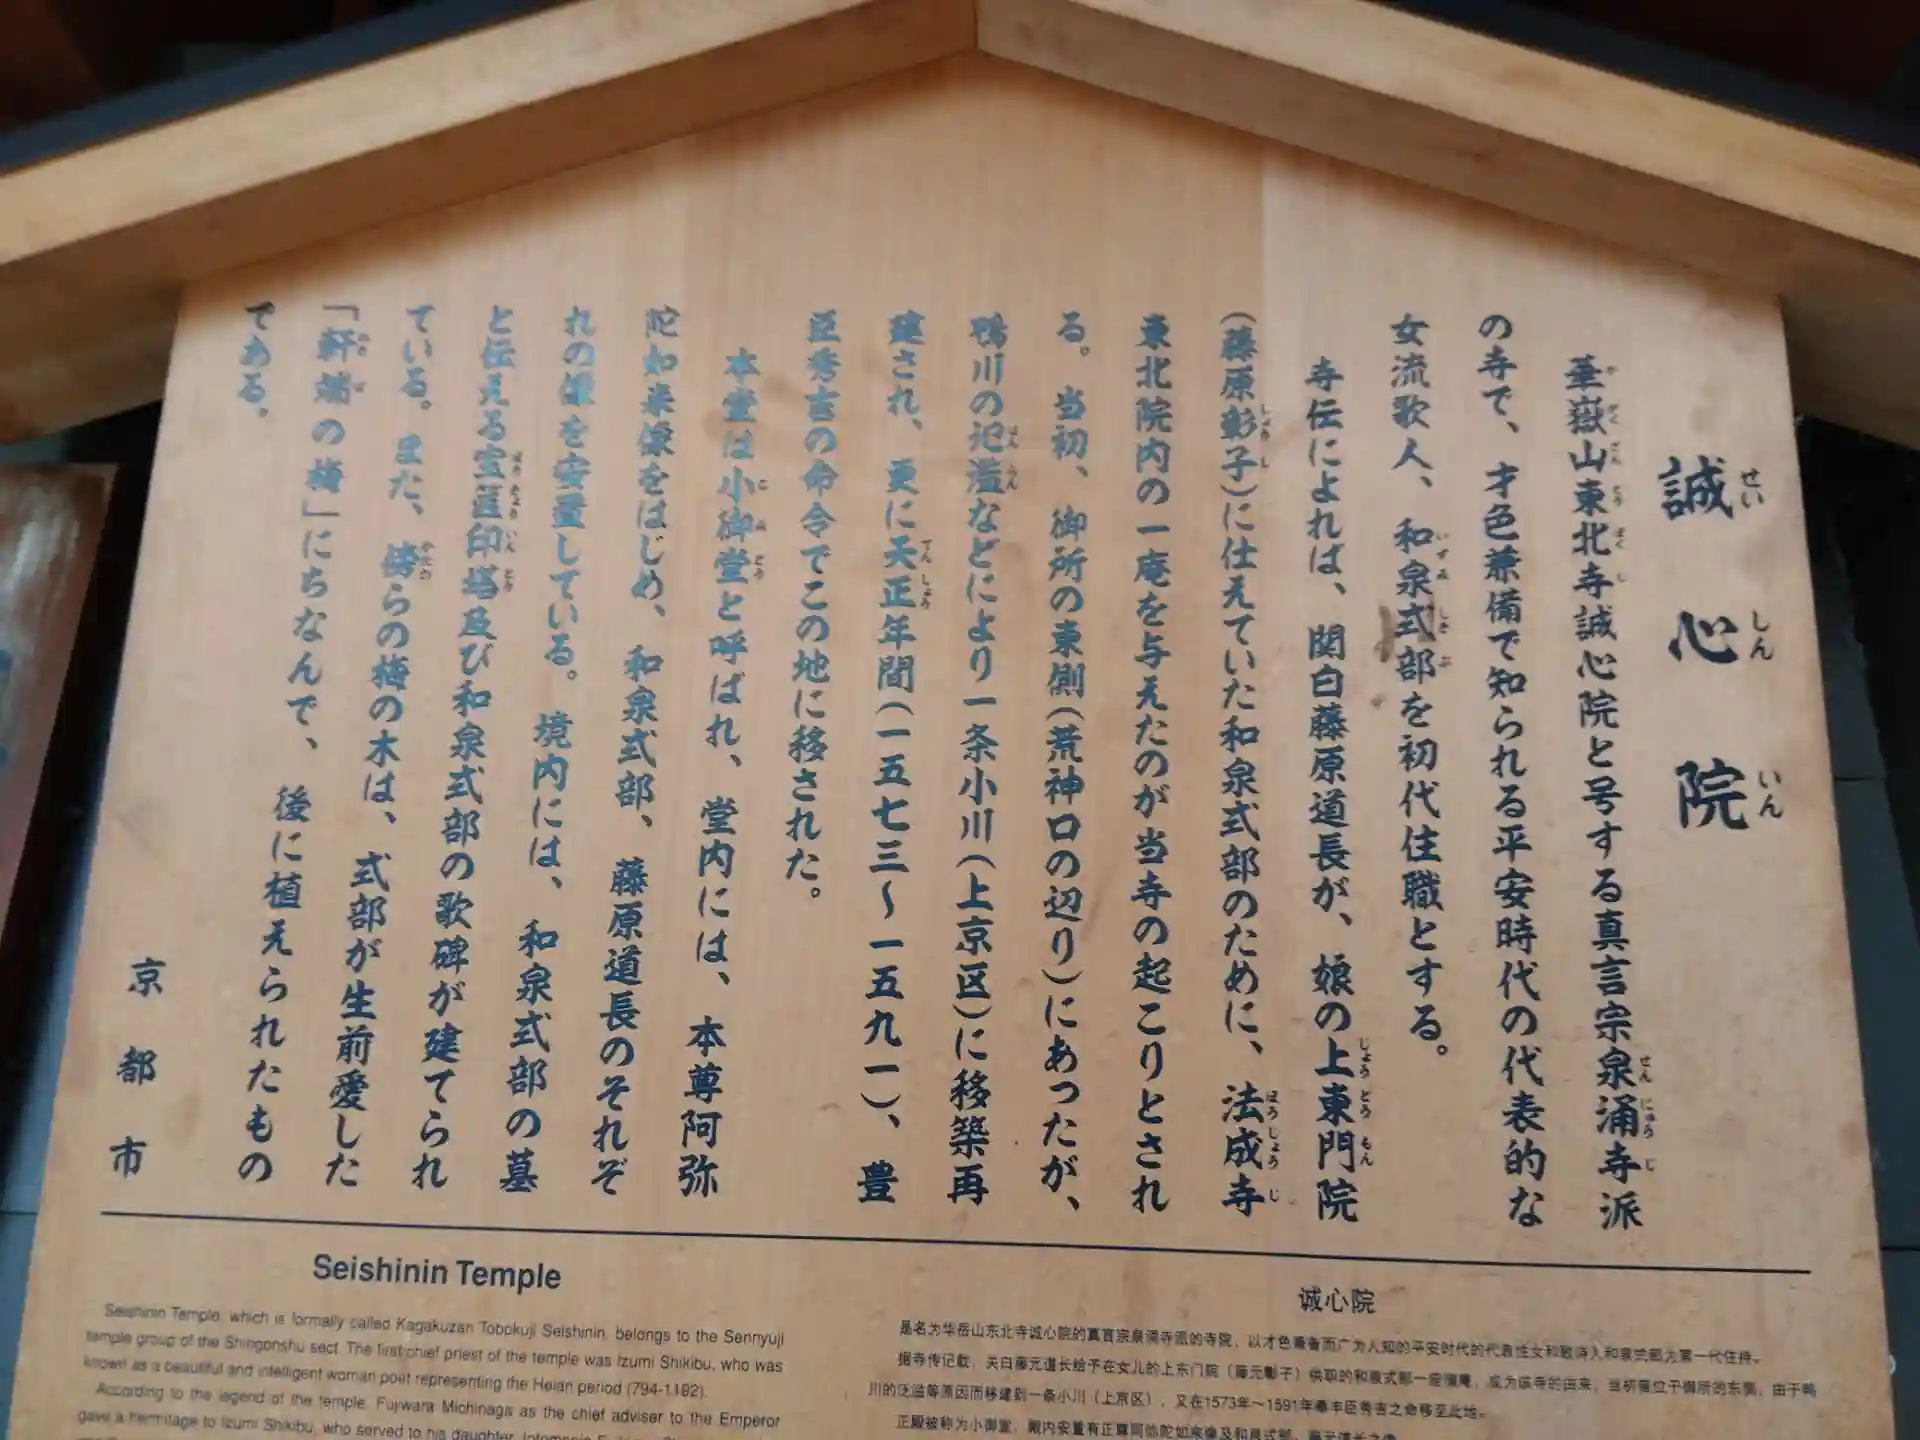 誠心院
華嶽山東北寺誠心院と号する真言宗泉涌寺派
の寺で、才色兼備で知られる平安時代の代表的な
女流歌人、和泉式部を初代住職とする。
寺伝によれば、関白藤原道長が、娘の上東門院
(藤原彰子)に仕えていた和泉式部のために、法成寺
東北院内の一庵を与えたのが当寺の起こりとされ
る。当初、御所の東側(荒神口の辺り)にあったが、
鴨川の氾濫などにより一条小川(上京区)に移築再
建され、更に天正年間(一五七三〜一五九一)、豊
臣秀吉の命令でこの地に移された。
本堂は小御堂と呼ばれ、堂内には、本尊阿弥
陀如来像をはじめ、和泉式部、藤原道長のそれぞ
れの像を安置している。境内には、和泉式部の墓
と伝える宝篋印塔及び和泉式部の歌碑が建てられ
ている。また、傍らの梅の木は、式部が生前愛した
「軒端の梅」にちなんで、後に植えられたもの
である。
京都市
Seishinin Temple
Seishinin Temple, which is formally called Kagakuzan Tobokuji Seishinin, belongs to the Sennyuji
temple group of the Shingonshu sect. The first chief priest of the temple was Izumi Shikibu, who was
known as a beautiful and intelligent woman poet representing the Heian period (794-1192).
According to the legend of the temple, Fujiwara Michinaga as the chief adviser to the Emperor
gave a hermitage to Izumi Shikibu, who served to his daughter,
诚心院
是名为华岳山东北寺诚心院的真言宗泉涌寺派的寺院，以才色兼备而广为人知的平安时代的代表性女和歌诗人和泉式部为第一代住持。
据寺传记载，关白藤元道长给予在女儿的上东门院（藤元彰子）供职的和泉式部一座庵，成为该寺的由来，当初位于御所的东侧，由于鸭
川的泛滥等原因而移建到一条小川（上京区），又在1573年～1591年奉丰臣秀吉之命移至此地。
正殿被称为小御堂，殿内安置有正尊阿弥陀如来像及和泉式部、藤元道长之像